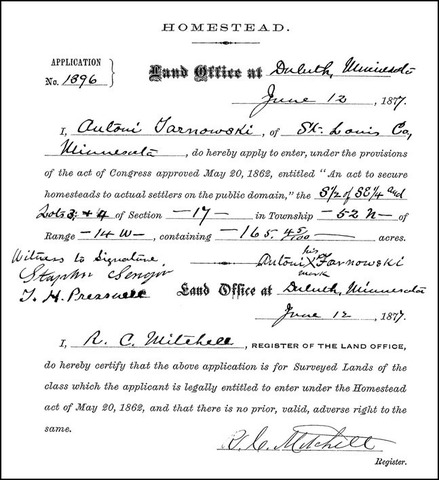 HOMESTEAD.
APPLICATION
No. 1896
Land Office at Duluth, Minnesota
June 12, 1877.
I, Antoni Tarnowski, of St. Louis Co,
Minnesota, do hereby apply to enter, under the provisions
of the act of Congress approved May 20, 1862, entitled “An act to secure
homesteads to actual settlers on the public domain,” the S1/2 of SE1/4 and
Lots 3 & 4 of Section -17- in Township -52 N-
Range -14 W-, containing -165. 45/100- acres.
Witness to Signature
his
Antoni X Tarnowski
mark
T. H. Pressnell
Land Office at Duluth, Minnesota
June 12, 1877.
I, R. C. Mitchell, REGISTER OF THE LAND OFFICE,
do hereby certify that the above application is for Surveyed Lands of the
class which the applicant is legally entitled to enter under the Homestead
act of May 20, 1862, and that there is no prior, valid, adverse right to the
same.
R. C. Mitchell
Register.